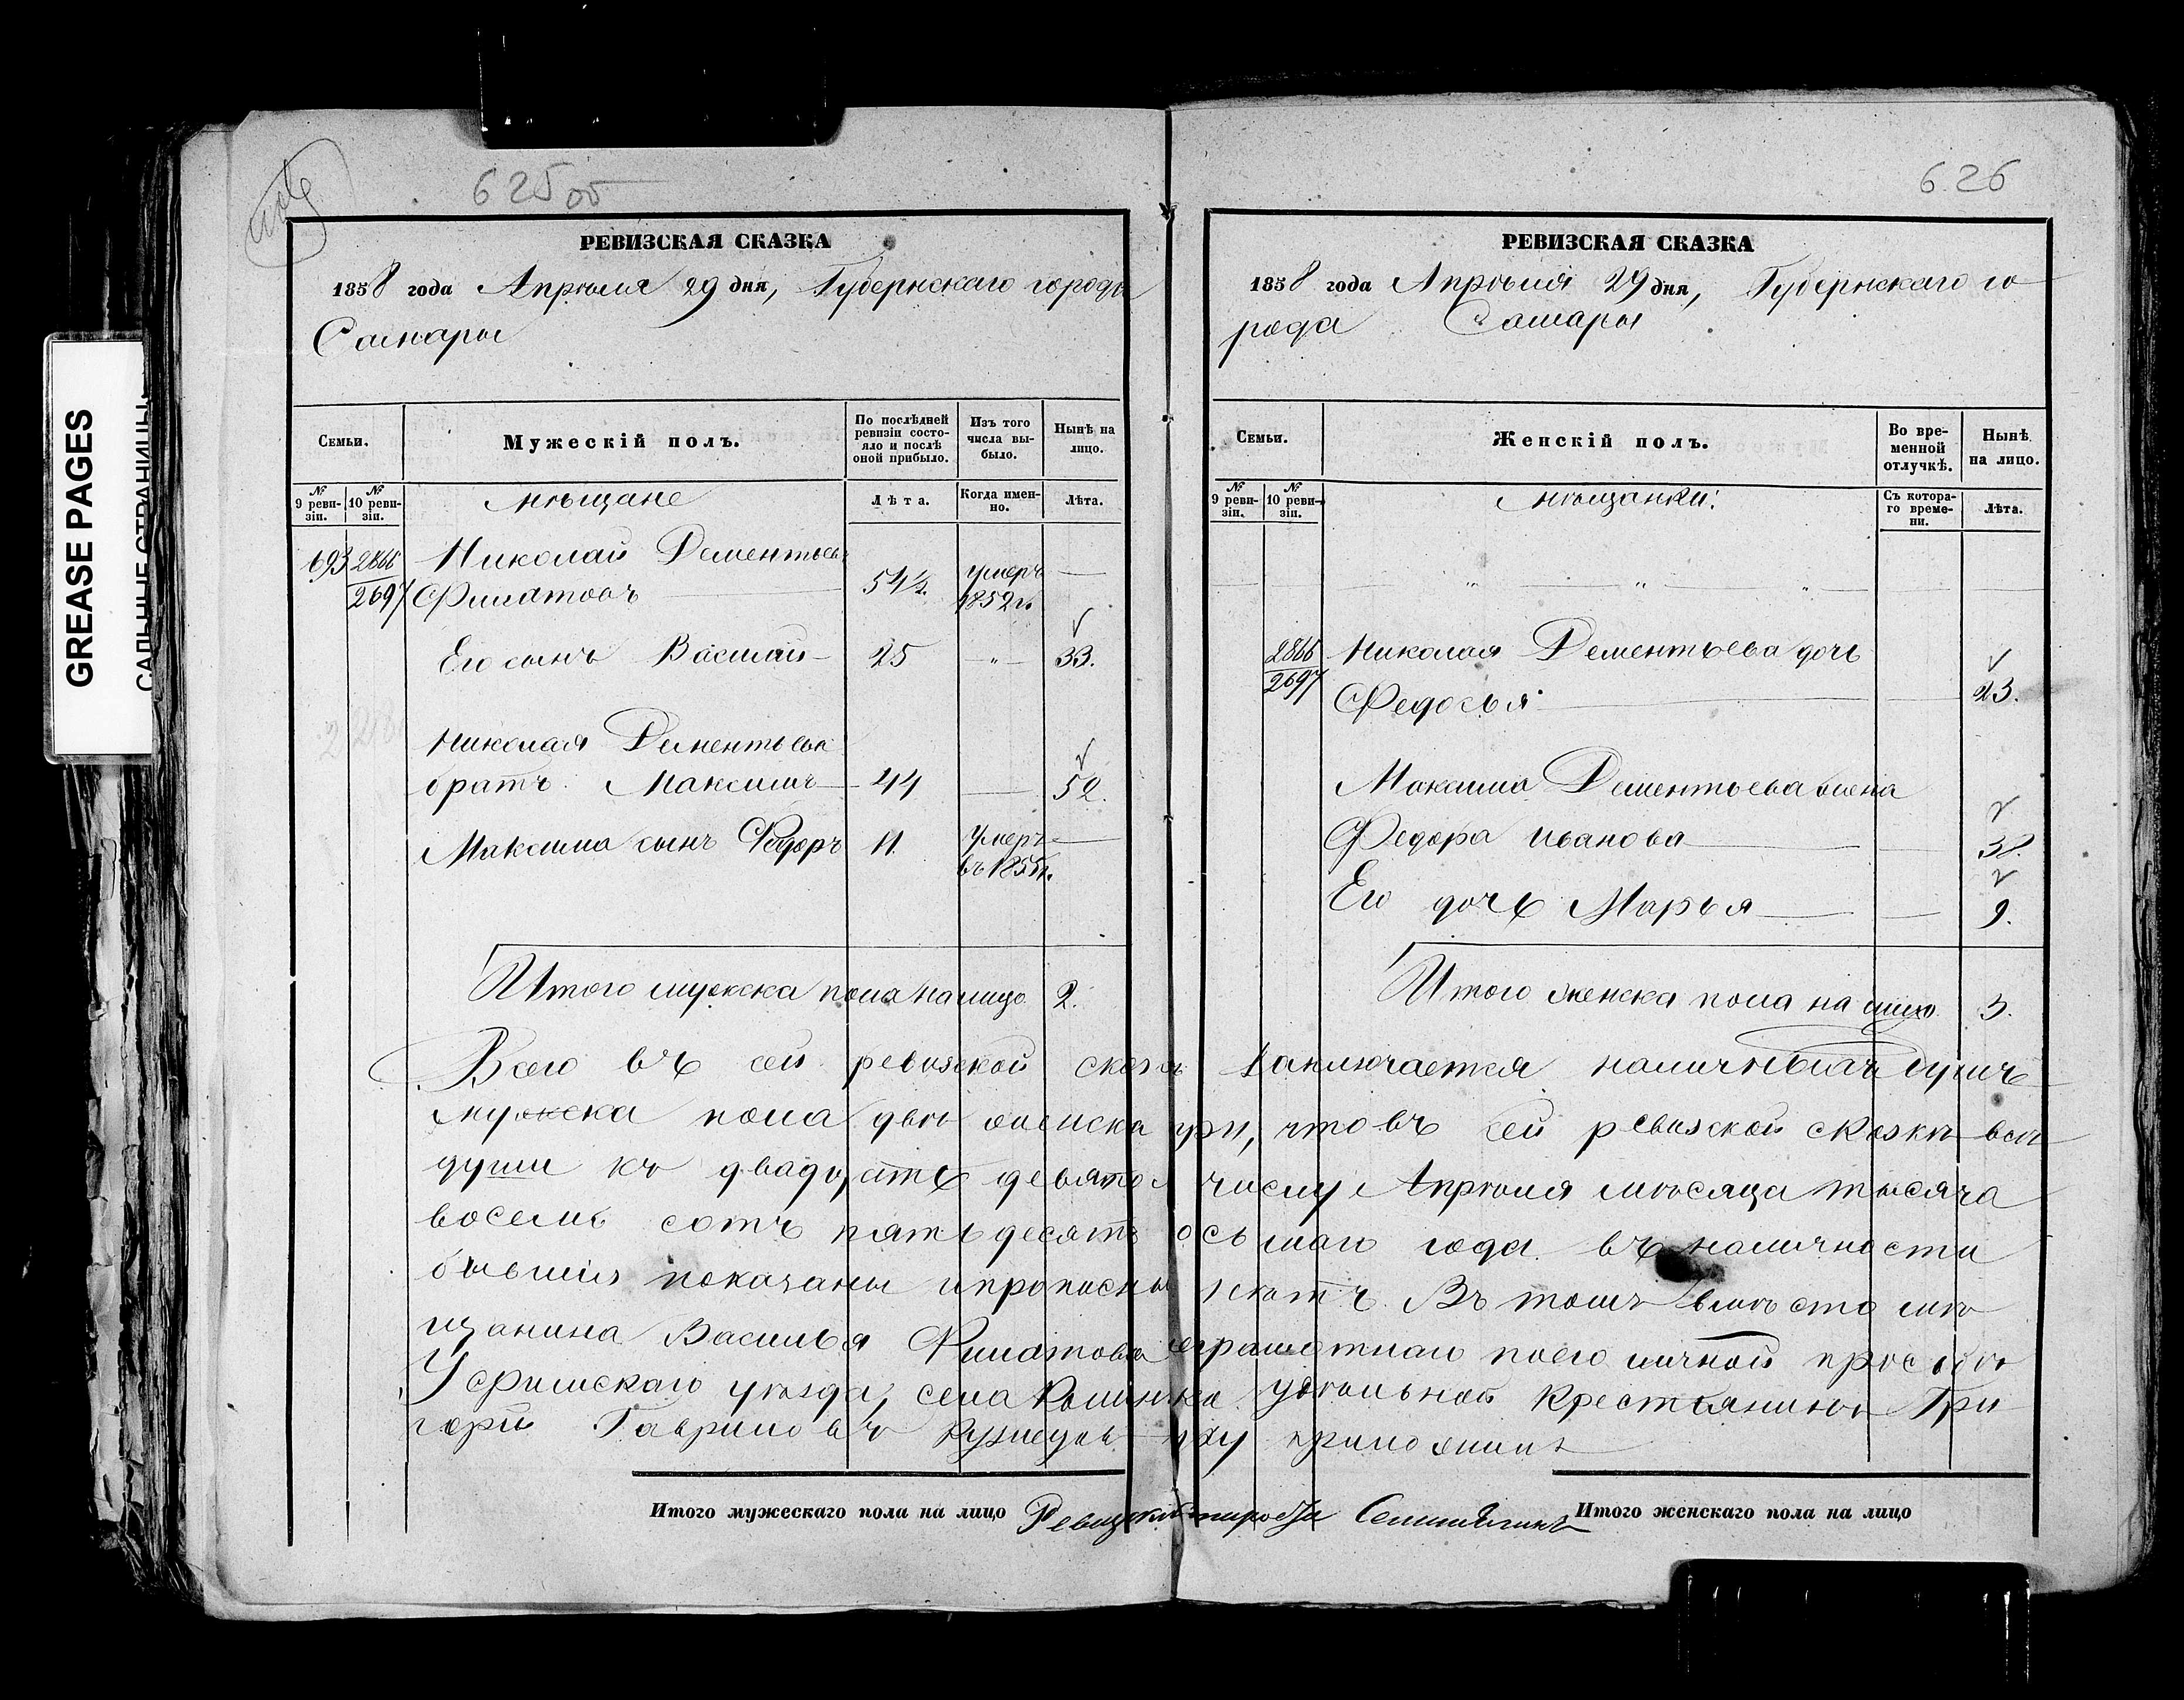 GREASE PAGES
САЛЬНЫЕ СТРАНИЦЫ
625 об
РЕВИЗСКАЯ СКАЗКА
1858 года Апрѣля 29 дня, Губернскаго города
Самары
Семьи.
Мужескій полъ.
По послѣдней ревизіи состояло и послѣ оной прибыло.
Изъ того числа выбыло.
Нынѣ на лицо.
№ 9 ревизіи.
№ 10 ревизіи.
мѣщане
Лѣта.
Когда именно.
Лѣта.
693 2866 Николай Дементьевъ
2697 Филатовъ 54½. умеръ 1852 г. —
Его сынъ Василий 25 — " — 33.
Николая Дементьева
братъ Максимъ 44 — 52.
Максима сынъ Федоръ 11. умеръ въ 1855 г. —
Итого мужска пола налицо 2.
626
РЕВИЗСКАЯ СКАЗКА
1858 года Апрѣля 29 дня, Губернскаго го
рода Самары
Семьи.
Женскій полъ.
Во временной отлучкѣ.
Нынѣ на лицо.
№ 9 ревизіи.
№ 10 ревизіи.
мѣщанки:
Съ котораго времени.
Лѣта.
2866 Николая Дементьева дочь
2697 Федосья 23.
Максима Дементьева жена
Федора Иванова 38.
Его дочь Марья 9.
Итого женска пола на лицо 3.
Всего въ сей ревизской сказкѣ заключается наличныхъ душъ
мужска пола двѣ женска три, что въ сей ревизской сказкѣ всѣ
души къ двадцать девятому числу Апрѣля мѣсяца тысяча
восемь сотъ пятьдесятъ осьмаго года въ наличности
бывшия показаны и прописныхъ нѣтъ. Въ томъ вмѣсто мѣ
щанина Василья Филатова неграмотнаго по его личной просьбѣ
уѣзда, села удѣльной крестьянинъ Гри
горій Гавриловъ Кузнецовъ руку приложилъ
Итого мужескаго пола на лицо
Итого женскаго пола на лицо